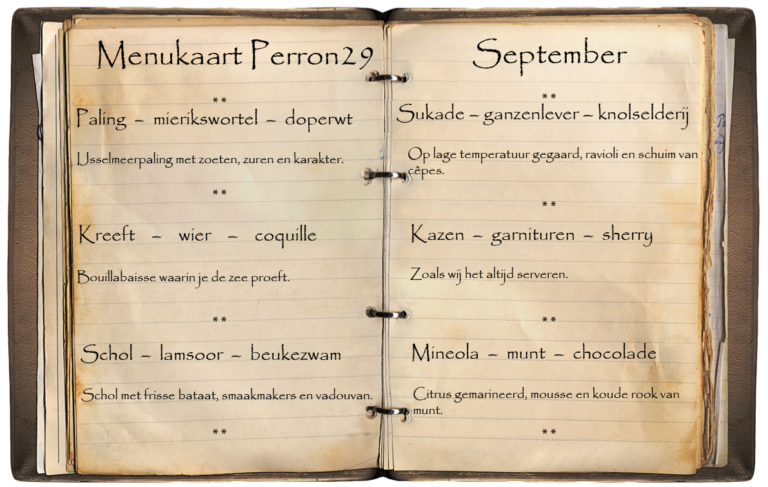 Menukaart Perron29
**
Paling – mierikswortel – doperwt
IJsselmeerpaling met zoeten, zuren en karakter.
**
Kreeft – wier – coquille
Bouillabaisse waarin je de zee proeft.
**
Schol – lamsoor – beukezwam
Schol met frisse bataat, smaakmakers en vadouvan.
**
September
**
Sukade – ganzenlever – knolselderij
Op lage temperatuur gegaard, ravioli en schuim van
cêpes.
**
Kazen – garnituren – sherry
Zoals wij het altijd serveren.
**
Mineola – munt – chocolade
Citrus gemarineerd, mousse en koude rook van
munt.
**